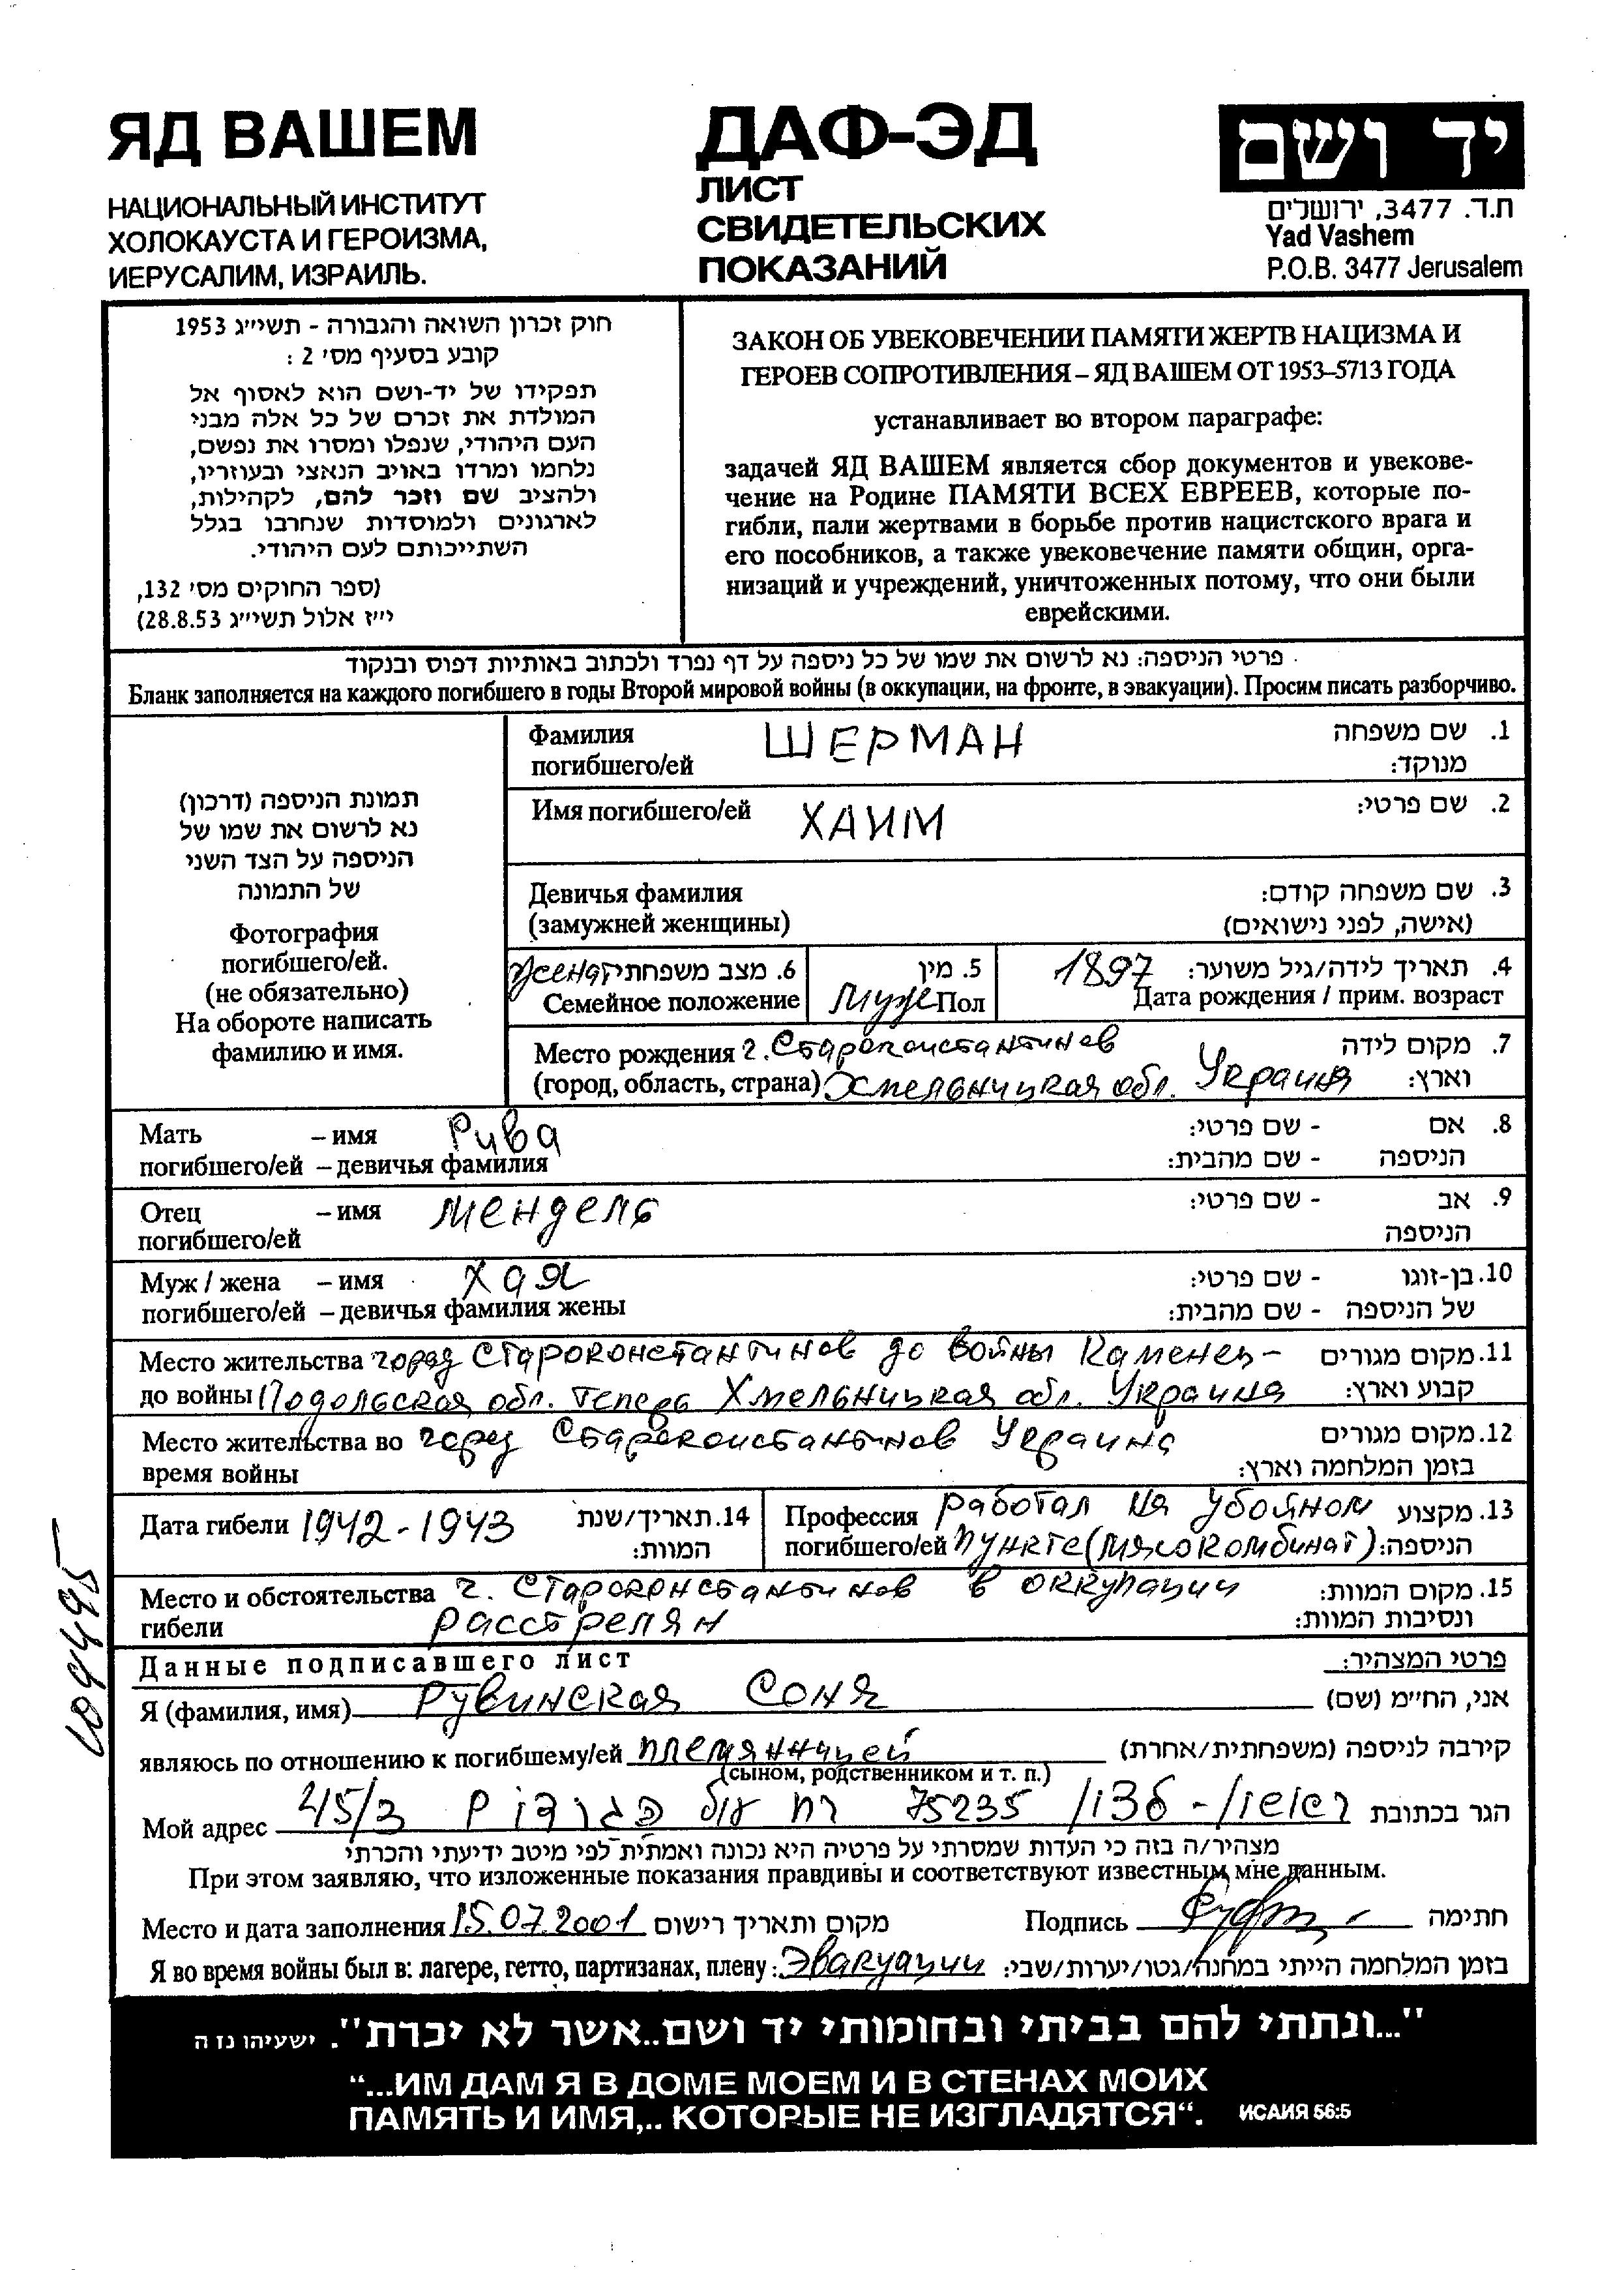 ЯД ВАШЕМ
НАЦИОНАЛЬНЫЙ ИНСТИТУТ
ХОЛОКАУСТА И ГЕРОИЗМА,
ИЕРУСАЛИМ, ИЗРАИЛЬ.
ДАФ-ЭД
ЛИСТ
СВИДЕТЕЛЬСКИХ
ПОКАЗАНИЙ
יד ושם
ת.ד. 3477, ירושלים
Yad Vashem
P.O.B. 3477 Jerusalem
חוק זכרון השואה והגבורה - תשי״ג 1953
קובע בסעיף מס׳ 2 :
תפקידו של יד-ושם הוא לאסוף אל
המולדת את זכרם של כל אלה מבני
העם היהודי, שנפלו ומסרו את נפשם,
נלחמו ומרדו באויב הנאצי ובעוזריו,
ולהציב שם וזכר להם, לקהילות,
לארגונים ולמוסדות שנחרבו בגלל
השתייכותם לעם היהודי.
(ספר החוקים מס׳ 132,
י״ז אלול תשי״ג 28.8.53)
ЗАКОН ОБ УВЕКОВЕЧЕНИИ ПАМЯТИ ЖЕРТВ НАЦИЗМА И
ГЕРОЕВ СОПРОТИВЛЕНИЯ – ЯД ВАШЕМ ОТ 1953–5713 ГОДА
устанавливает во втором параграфе:
задачей ЯД ВАШЕМ является сбор документов и увекове-
чение на Родине ПАМЯТИ ВСЕХ ЕВРЕЕВ, которые по-
гибли, пали жертвами в борьбе против нацистского врага и
его пособников, а также увековечение памяти общин, орга-
низаций и учреждений, уничтоженных потому, что они были
еврейскими.
פרטי הניספה: נא לרשום את שמו של כל ניספה על דף נפרד ולכתוב באותיות דפוס ובנקוד
Бланк заполняется на каждого погибшего в годы Второй мировой войны (в оккупации, на фронте, в эвакуации). Просим писать разборчиво.
תמונת הניספה (דרכון)
נא לרשום את שמו של
הניספה על הצד השני
של התמונה
Фотография
погибшего/ей.
(не обязательно)
На обороте написать
фамилию и имя.
Фамилия ШЕРМАН 1. שם משפחה
погибшего/ей מנוקד:
Имя погибшего/ей ХАИМ 2. שם פרטי:
Девичья фамилия 3. שם משפחה קודם:
(замужней женщины) (אישה, לפני נישואים)
женат 6. מצב משפחתי 5. מין 1897 4. תאריך לידה/גיל משוער:
Семейное положение Муж Пол Дата рождения / прим. возраст
Место рождения г. Староконстантинов 7. מקום לידה
(город, область, страна) Хмельницкая обл. Украина וארץ:
Мать – имя Рива 8. אם - שם פרטי:
погибшего/ей – девичья фамилия הניספה - שם מהבית:
Отец – имя Мендель 9. אב - שם פרטי:
погибшего/ей הניספה
Муж / жена – имя Хая 10. בן-זוגו - שם פרטי:
погибшего/ей – девичья фамилия жены של הניספה - שם מהבית:
Место жительства город Староконстантинов до войны Каменец- 11. מקום מגורים
до войны Подольская обл. теперь Хмельницкая обл. Украина קבוע וארץ:
Место жительства во город Староконстантинов Украина 12. מקום מגורים
время войны בזמן המלחמה וארץ:
Дата гибели 1942-1943 14. תאריך/שנת המוות:
Профессия работал на убойном 13. מקצוע
погибшего/ей пункте (мясокомбинат) הניספה:
Место и обстоятельства г. Староконстантинов в оккупации 15. מקום המוות:
гибели расстрелян ונסיבות המוות:
Данные подписавшего лист פרטי המצהיר:
Я (фамилия, имя) Рувинская Соня אני, הח״מ (שם)
являюсь по отношению к погибшему/ей племянницей קירבה לניספה (משפחתית/אחרת)
(сыном, родственником и т. п.)
Мой адрес 45/3 75235 ראשון-לציון הגר בכתובת
מצהיר/ה בזה כי העדות שמסרתי על פרטיה היא נכונה ואמתית לפי מיטב ידיעתי והכרתי
При этом заявляю, что изложенные показания правдивы и соответствуют известным мне данным.
Место и дата заполнения 15.07.2001 מקום ותאריך רישום Подпись חתימה
Я во время войны был в: лагере, гетто, партизанах, плену: Эвакуации בזמן המלחמה הייתי במחנה/גטו/יערות/שבי:
"...ונתתי להם בביתי ובחומותי יד ושם..אשר לא יכרת". ישעיהו נז ה
“...ИМ ДАМ Я В ДОМЕ МОЕМ И В СТЕНАХ МОИХ
ПАМЯТЬ И ИМЯ,.. КОТОРЫЕ НЕ ИЗГЛАДЯТСЯ“. ИСАИЯ 56:5